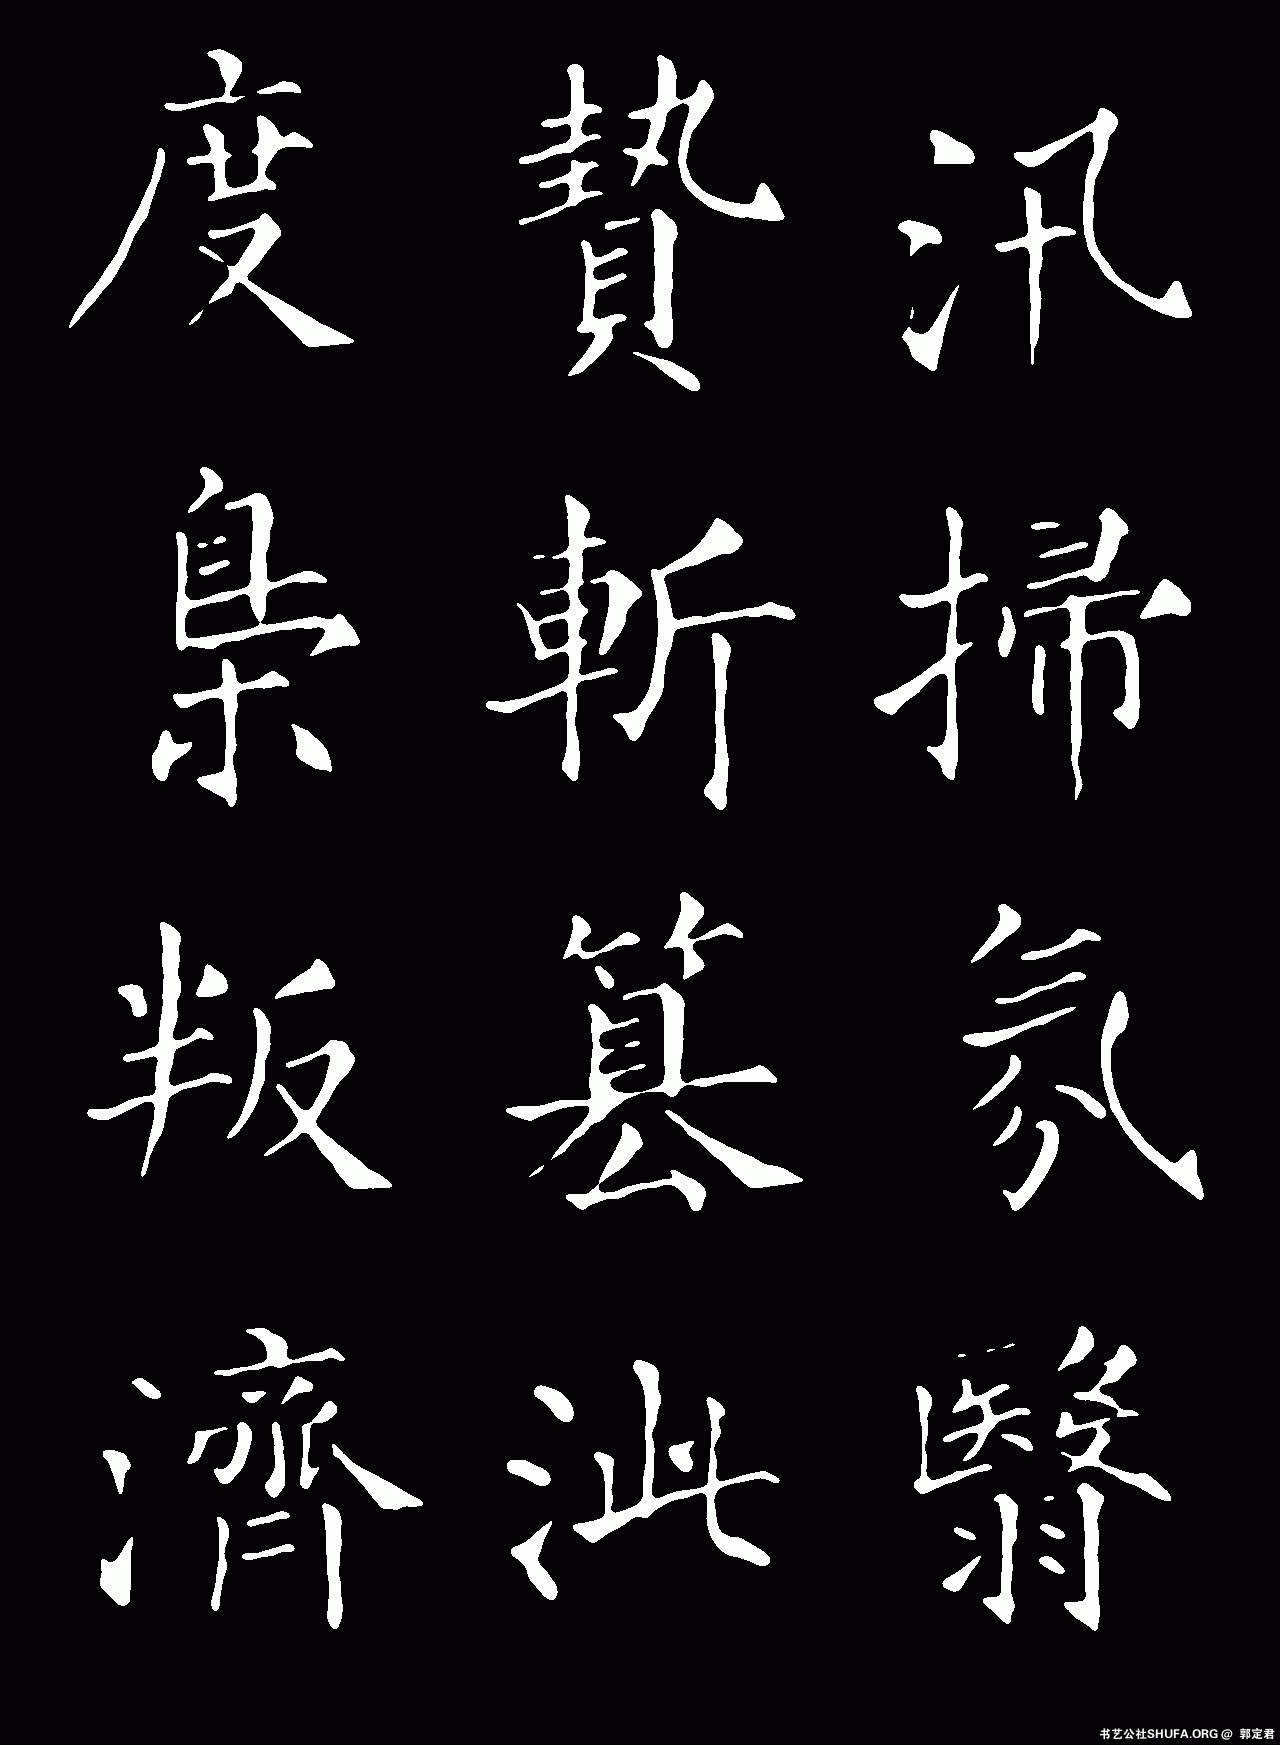 汛掃氛翳
贄斬篡泚
度梟叛濟
书艺公社SHUFA.ORG @ 郭定君